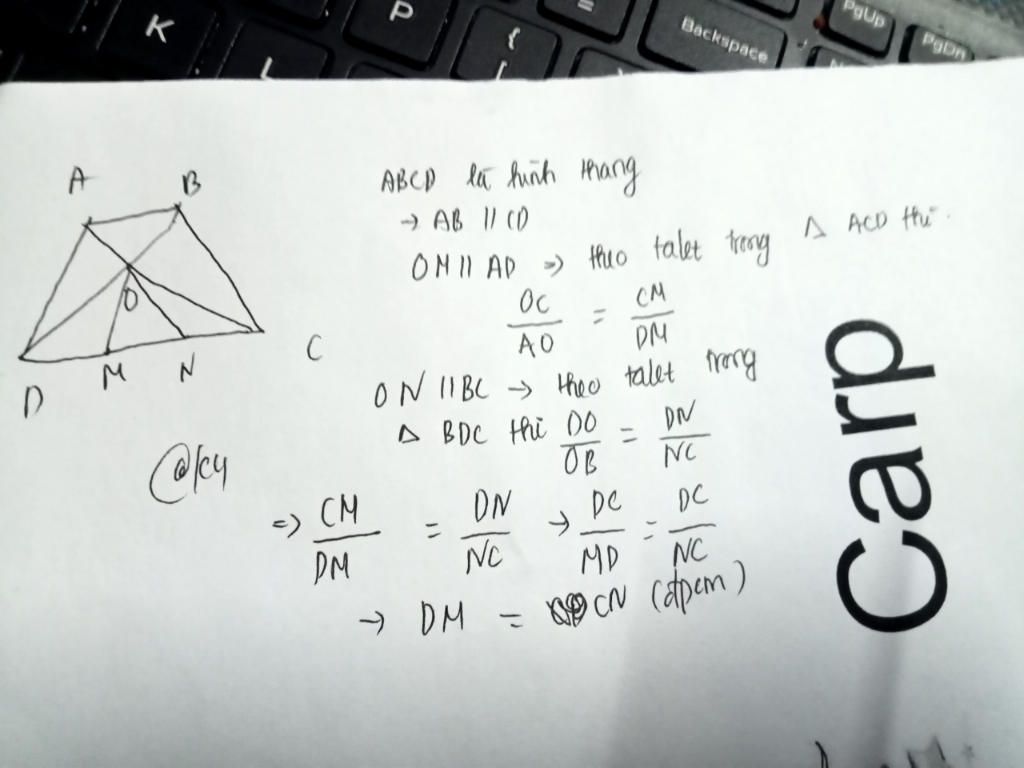 K
L
P
{
[
=
Backspace
PgUp
PgDn
A
B
ABCD là hình thang
→ AB // CD
OM // AD => theo talet trong Δ ACD thì
OC/AO = CM/DM
O
D
M
N
C
ON // BC → theo talet trong
Δ BDC thì DO/OB = DN/NC
@kcy
=> CM/DM = DN/NC → DC/MD = DC/NC
→ DM = CN (đpcm)
Carp